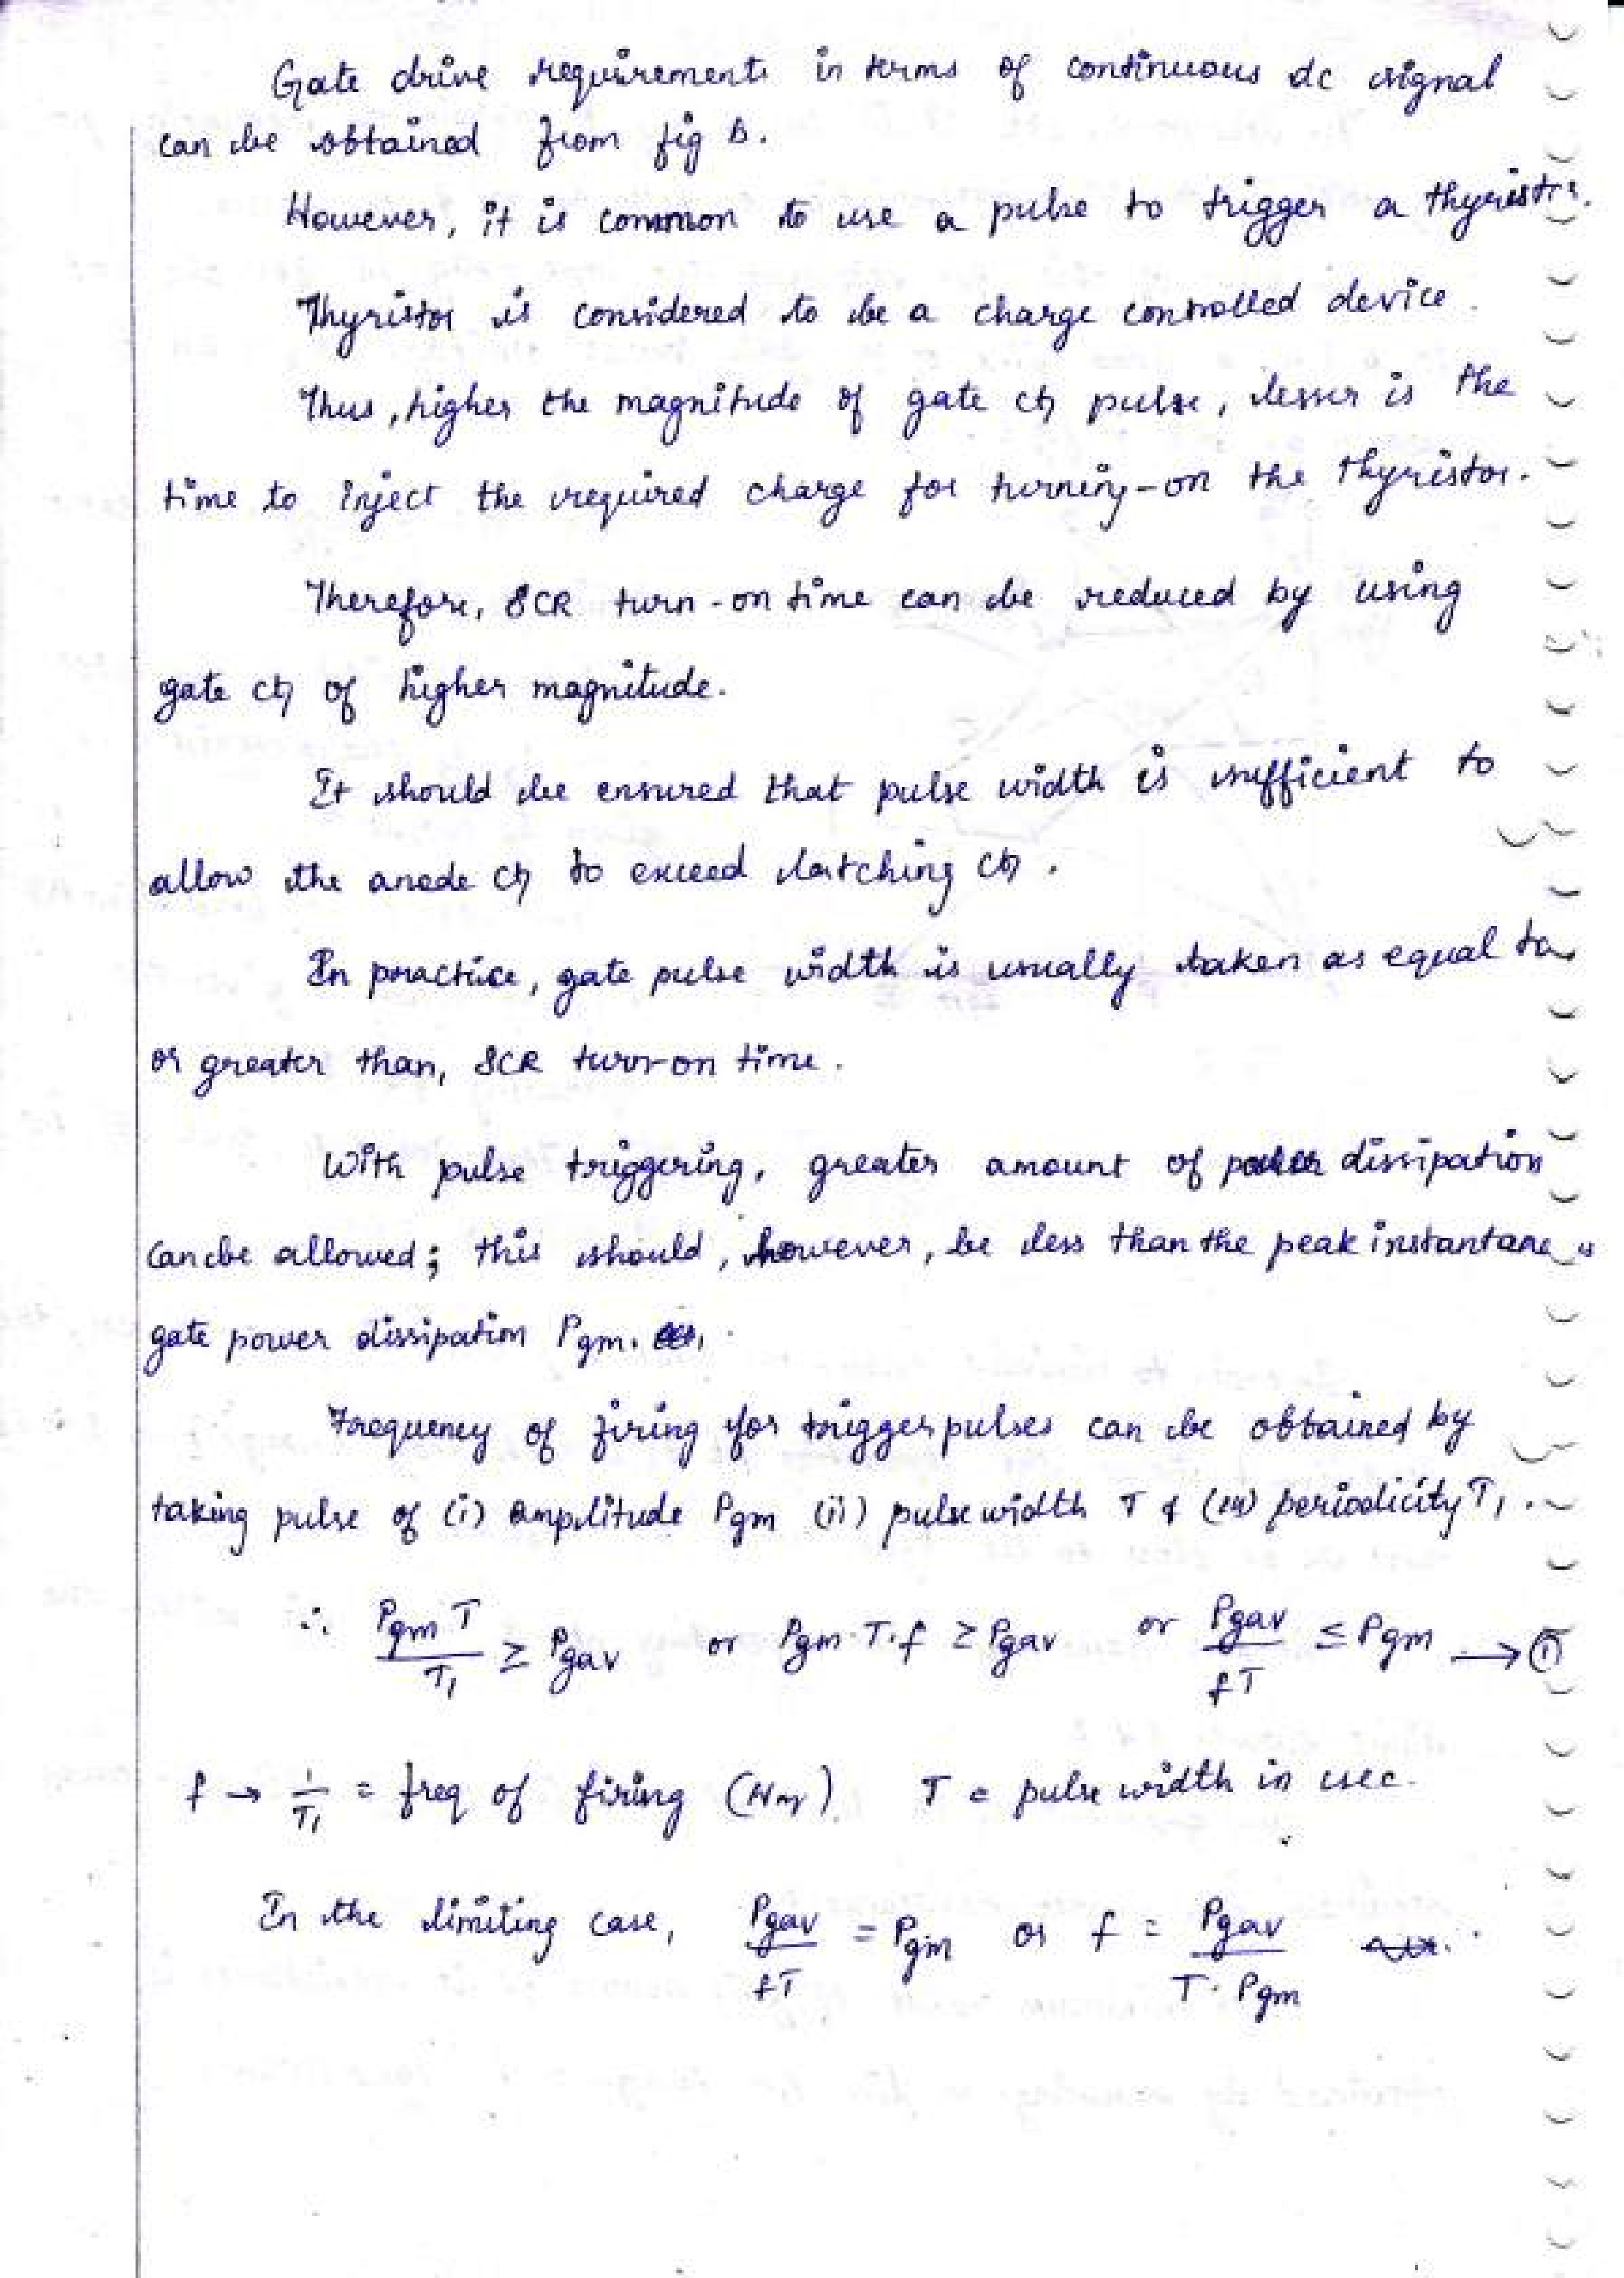 Gate drive requirements in terms of continuous dc signal
can be obtained from fig B.
However, it is common to use a pulse to trigger a thyristor.
Thyristor is considered to be a charge controlled device.
Thus, higher the magnitude of gate ct pulse, lesser is the
time to inject the required charge for turning-on the thyristor.
Therefore, SCR turn-on time can be reduced by using
gate ct of higher magnitude.
It should be ensured that pulse width is sufficient to
allow the anode ct to exceed latching ct.
In practice, gate pulse width is usually taken as equal to
or greater than, SCR turn-on time.
With pulse triggering, greater amount of power dissipation
can be allowed; this should, however, be less than the peak instantane
gate power dissipation Pgm.
Frequency of firing for trigger pulses can be obtained by
taking pulse of (i) amplitude Pgm (ii) pulse width T & (iii) periodicity T1.
∴ Pgm T / T1 ≥ Pgav or Pgm·T·f ≥ Pgav or Pgav / fT ≤ Pgm → ①
f → 1/T1 = freq of firing (Hz) T = pulse width in sec.
In the limiting case, Pgav / fT = Pgm or f = Pgav / T·Pgm